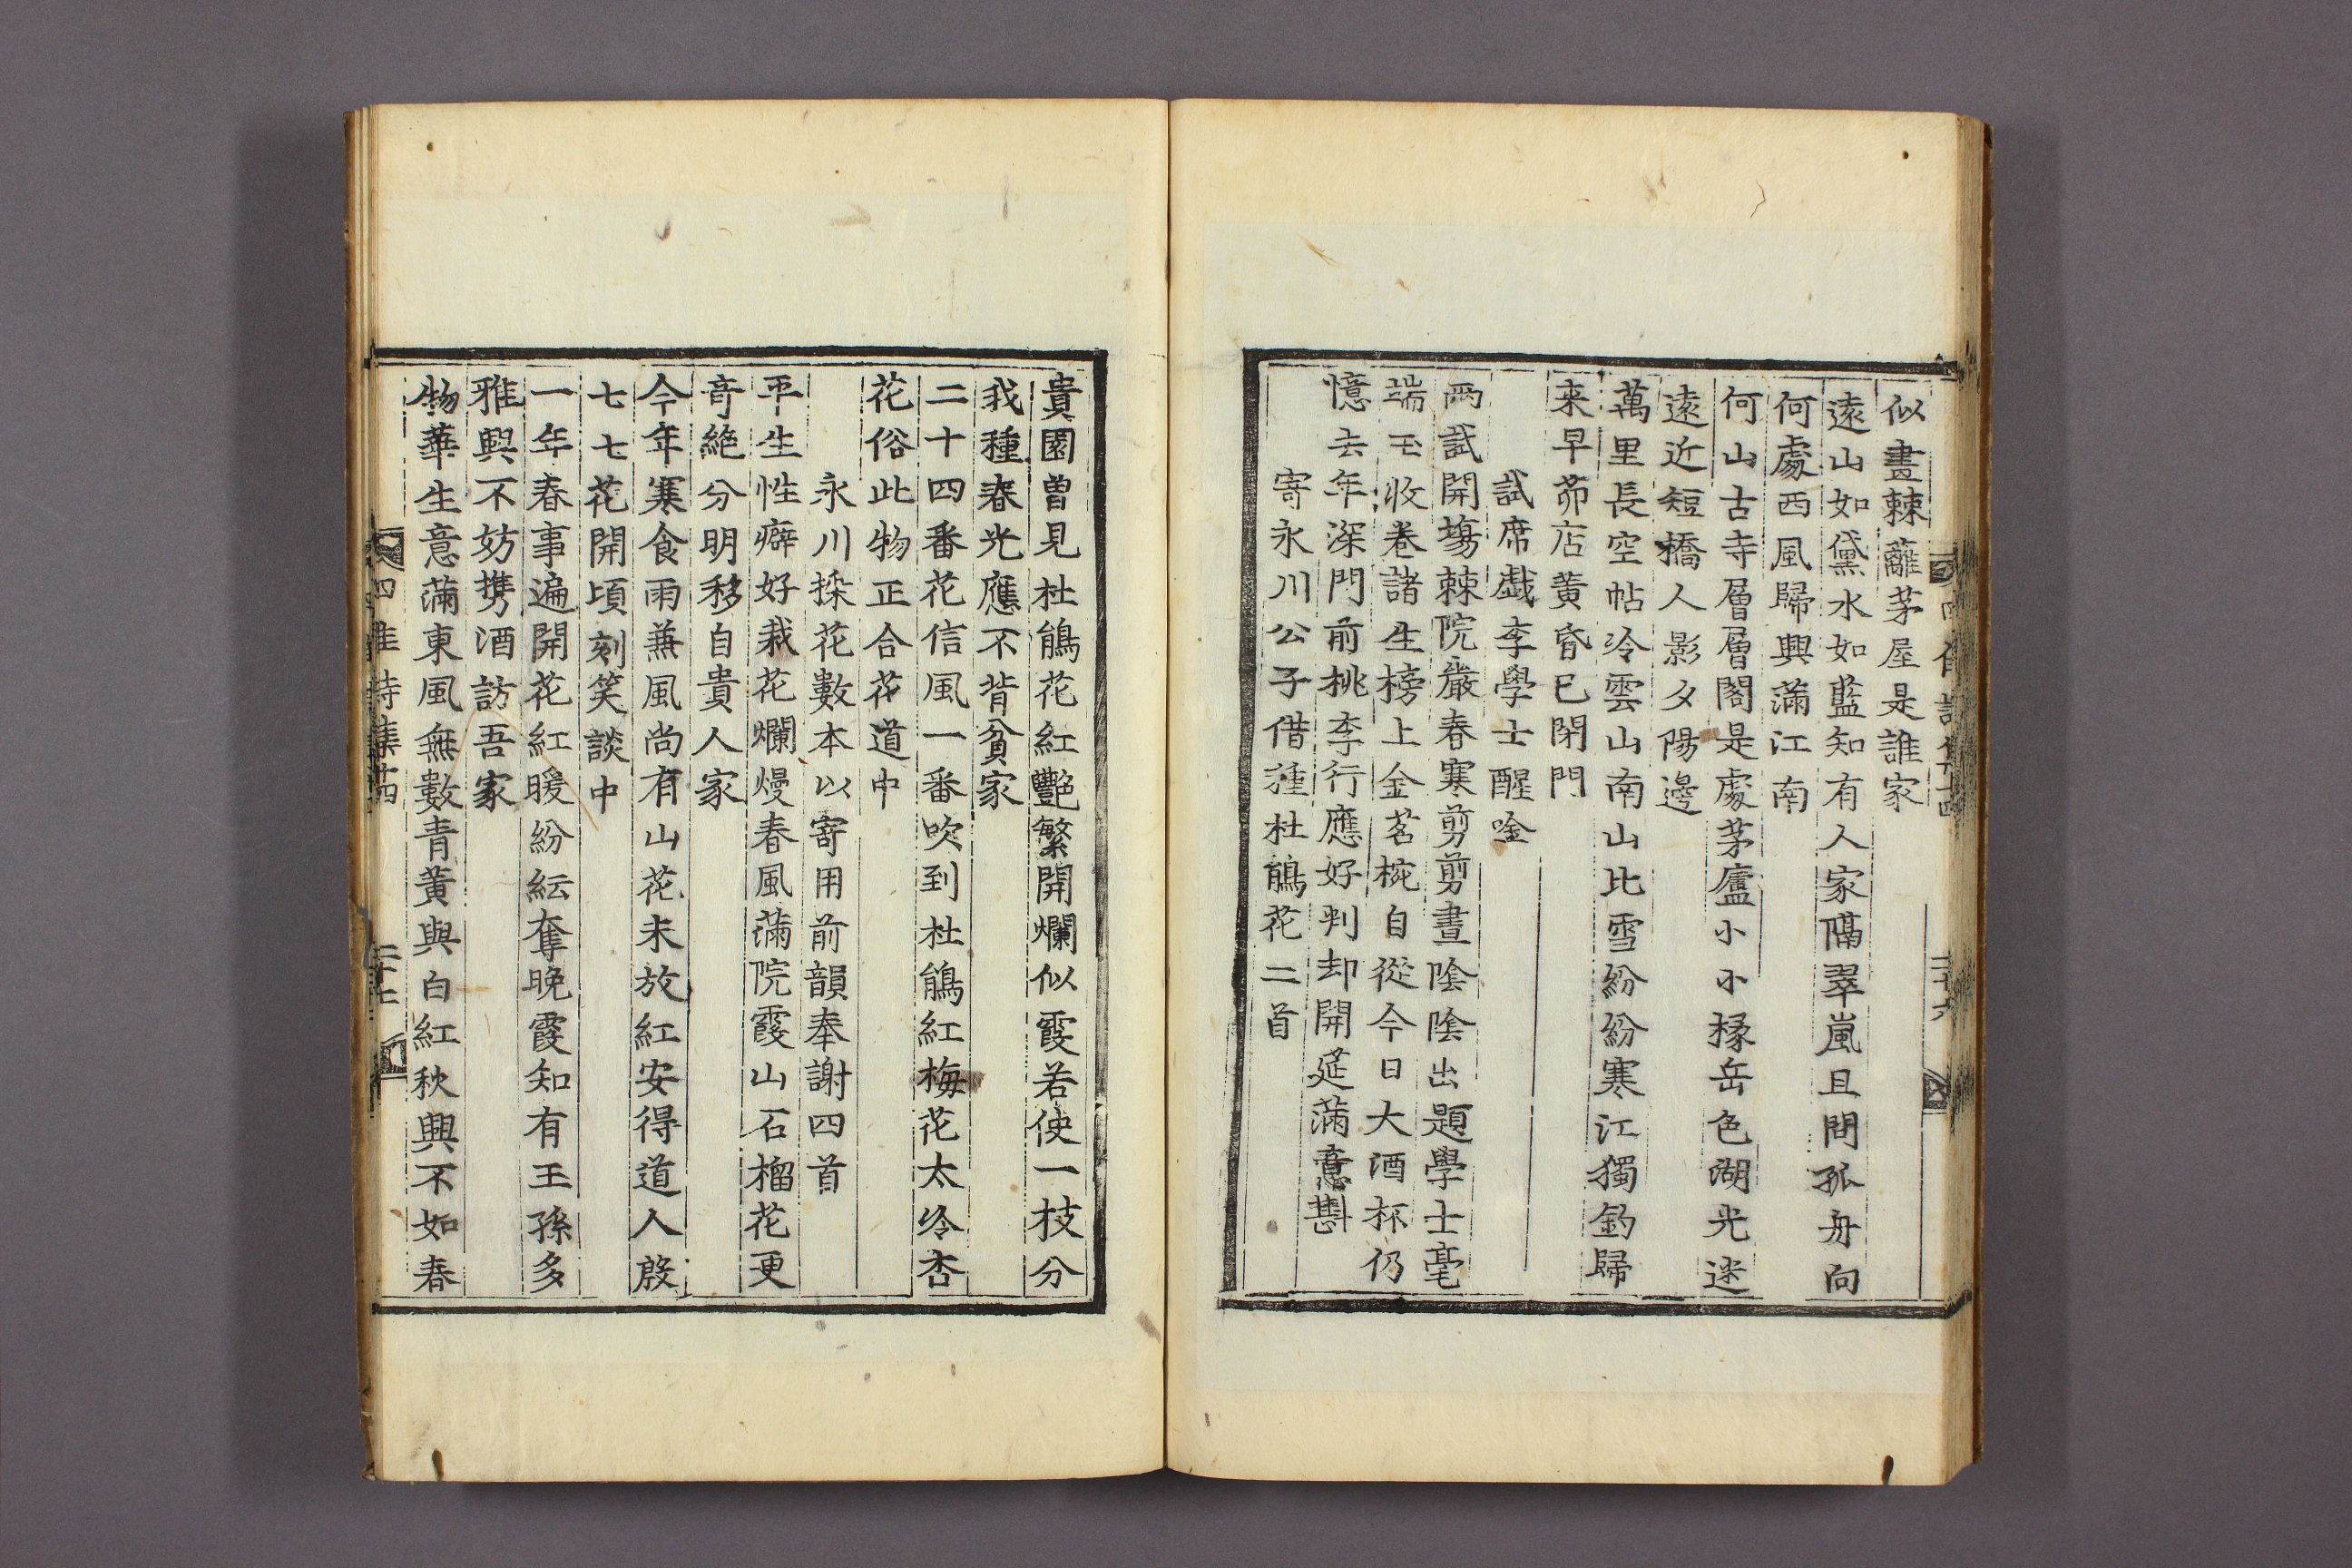 似畫棘籬茅屋是誰家
遠山如黛水如藍知有人家隔翠嵐且問孤舟向
何處西風歸興滿江南
何山古寺層層閣是處茅廬小小椽岳色湖光迷
遠近短橋人影夕陽邊
萬里長空帖冷雲山南山比雪紛紛寒江獨釣歸
来早茆店黃昏已閉門
試席戱李學士醒唫
兩試開塲棘院嚴春寒剪剪晝陰陰出題學士毫
端玉收卷諸生榜上金茗椀自從今日大酒杯仍
憶去年深門前桃李行應好判却開筵滿意斟
寄永川公子借種杜鵑花二首
二十六
貴園曾見杜鵑花紅艷繁開爛似霞若使一枝分
我種春光應不背貧家
二十四番花信風一番吹到杜鵑紅梅花太冷杏
花俗此物正合花道中
永川採花數本以寄用前韻奉謝四首
平生性癖好栽花爛熳春風滿院霞山石榴花更
竒絶分明移自貴人家
今年寒食雨兼風尚有山花未放紅安得道人殷
七七花開頃刻笑談中
一年春事遍開花紅暖紛紜奪晚霞知有王孫多
雅興不妨携酒訪吾家
物華生意滿東風無數青黃與白紅秋興不如春
四佳詩集十四
二十七